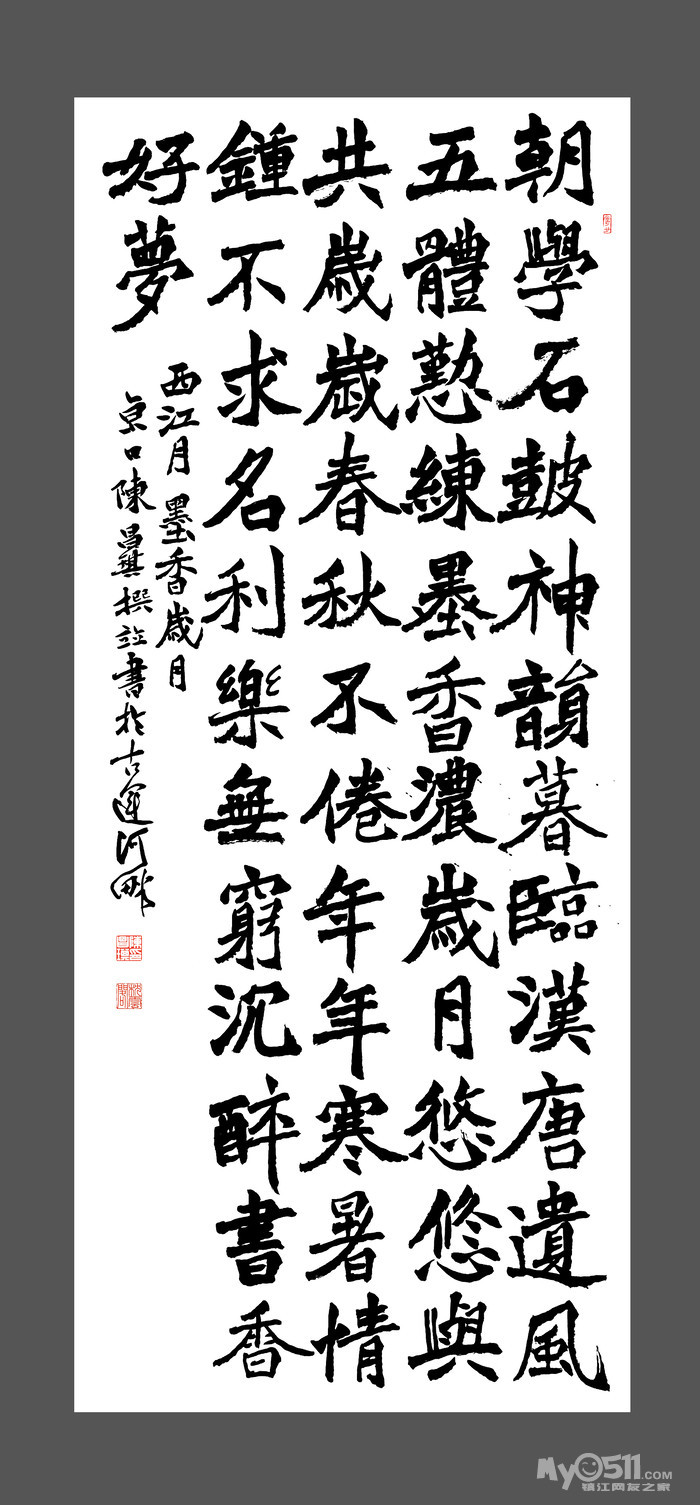 朝學石皷神韻暮臨漢唐遺風
五體懃練墨香濃歲月悠悠與
共歲歲春秋不倦年年寒暑情
鍾不求名利樂無窮沉醉書香
好夢
西江月 墨香歲月
京口陳昌撰並書於古運河畔
My0511.COM
镇江网友之家